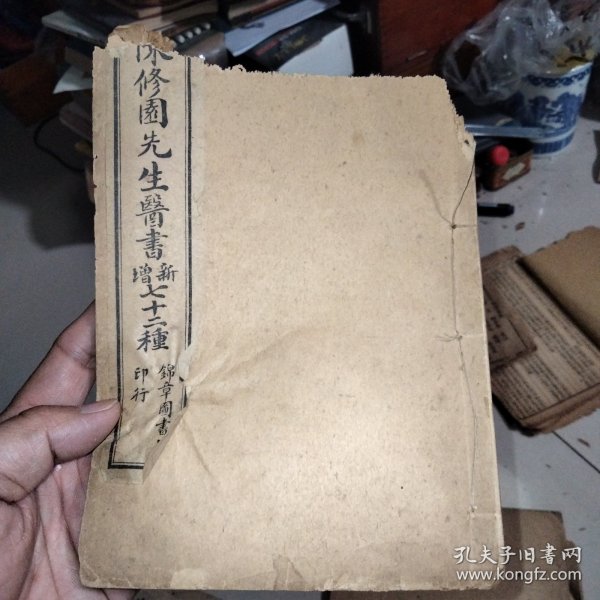 陳修園先生醫書新增七十二種
錦章圖書
印行
孔夫子旧书网
www.kongfz.com